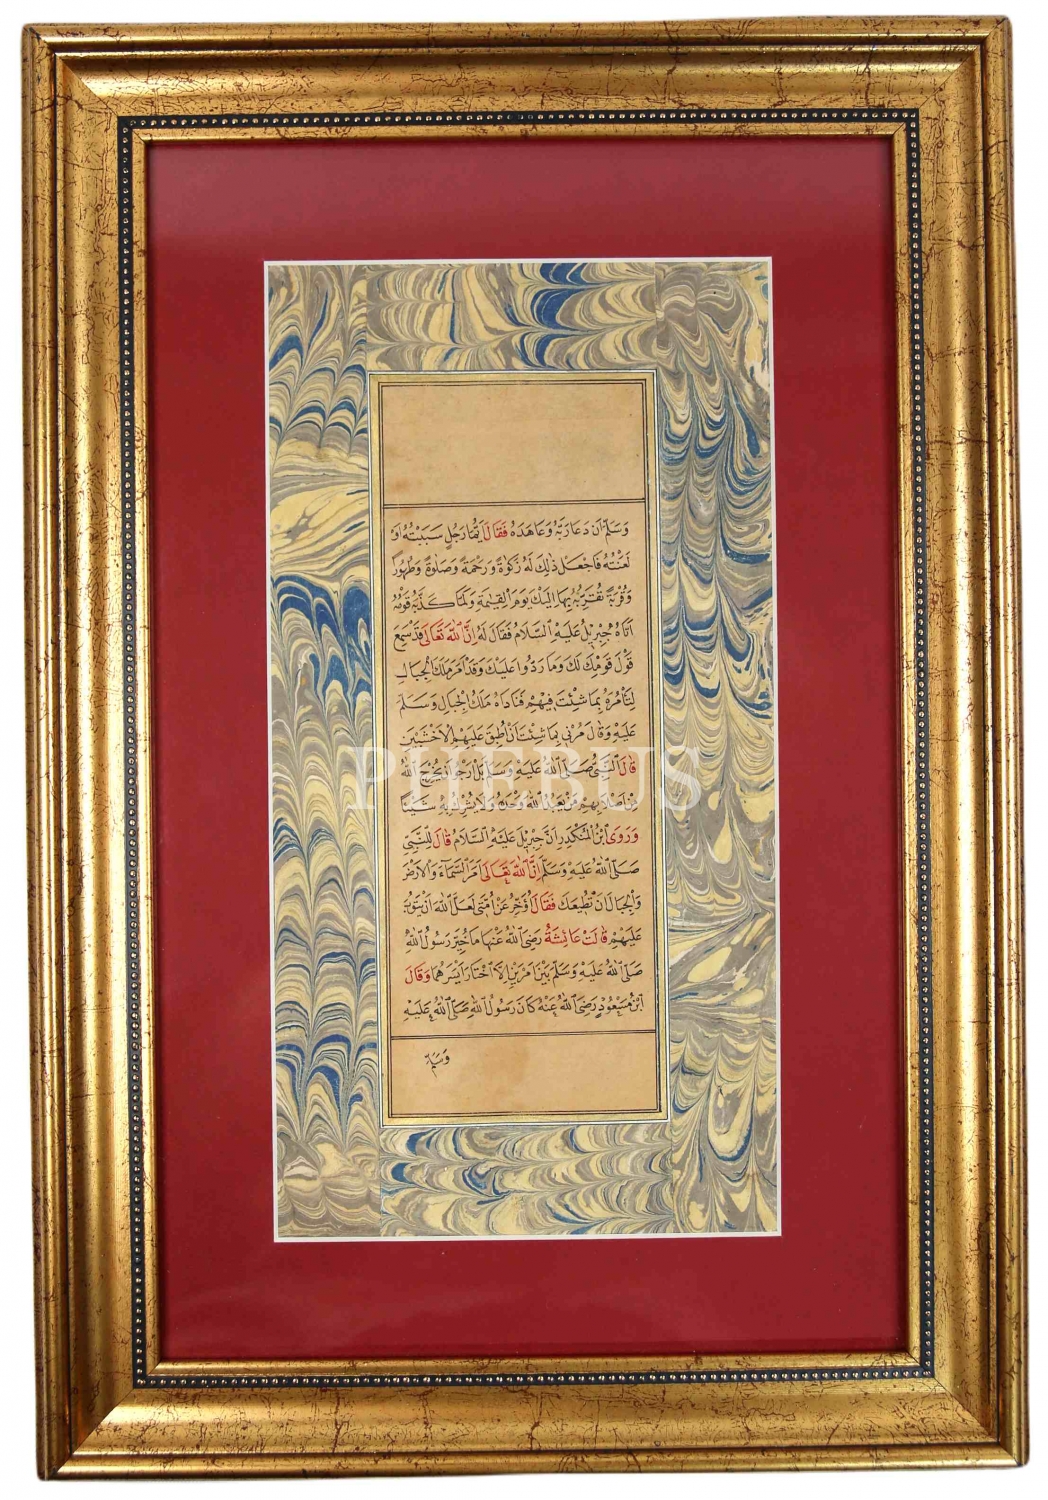 وَسَلَّمَ اَنْ دَعَا رَبَّهُ وَعَاهَدَهُ فَقَالَ اَيُّمَا رَجُلٍ سَبَبْتُهُ اَوْ
لَعَنْتُهُ فَاجْعَلْ ذٰلِكَ لَهُ زَكٰوةً وَرَحْمَةً وَصَلٰوةً وَطَهُورًا
وَقُرْبَةً تُقَرِّبُهُ بِهَا اِلَيْكَ يَوْمَ الْقِيٰمَةِ وَلَمَّا كَذَّبَهُ قَوْمُهُ
اَتَاهُ جِبْرِيلُ عَلَيْهِ السَّلَامُ فَقَالَ لَهُ اِنَّ اللّٰهَ تَعَالٰى قَدْ سَمِعَ
قَوْلَ قَوْمِكَ لَكَ وَمَا رَدُّوا عَلَيْكَ وَقَدْ اَمَرَ مَلَكَ الْجِبَالِ
لِتَأْمُرَهُ بِمَا شِئْتَ فِيهِمْ فَنَادَاهُ مَلَكُ الْجِبَالِ وَسَلَّمَ
عَلَيْهِ وَقَالَ مُرْنِي بِمَا شِئْتَ اَنْ اُطْبِقَ عَلَيْهِمُ الْاَخْشَبَيْنِ
قَالَ النَّبِيُّ صَلَّى اللّٰهُ عَلَيْهِ وَسَلَّمَ بَلْ اَرْجُو اَنْ يُخْرِجَ اللّٰهُ
مِنْ اَصْلَابِهِمْ مَنْ يَعْبُدُ اللّٰهَ وَحْدَهُ وَلَا يُشْرِكُ بِهِ شَيْئًا
وَرَوَى ابْنُ الْمُنْكَدِرِ اَنَّ جِبْرِيلَ عَلَيْهِ السَّلَامُ قَالَ لِلنَّبِيِّ
صَلَّى اللّٰهُ عَلَيْهِ وَسَلَّمَ اِنَّ اللّٰهَ تَعَالَى اَمَرَ السَّمَاءَ وَالْاَرْضَ
وَالْجِبَالَ اَنْ تُطِيعَكَ فَقَالَ اُؤَخِّرُ عَنْ اُمَّتِي لَعَلَّ اللّٰهَ اَنْ يَتُوبَ
عَلَيْهِمْ قَالَتْ عَائِشَةُ رَضِيَ اللّٰهُ عَنْهَا مَا خُيِّرَ رَسُولُ اللّٰهِ
صَلَّى اللّٰهُ عَلَيْهِ وَسَلَّمَ بَيْنَ اَمْرَيْنِ اِلَّا اخْتَارَ اَيْسَرَهُمَا وَقَالَ
ابْنُ مَسْعُودٍ رَضِيَ اللّٰهُ عَنْهُ كَانَ رَسُولُ اللّٰهِ صَلَّى اللّٰهُ عَلَيْهِ
وَسَلَّمَ
PHEBUS